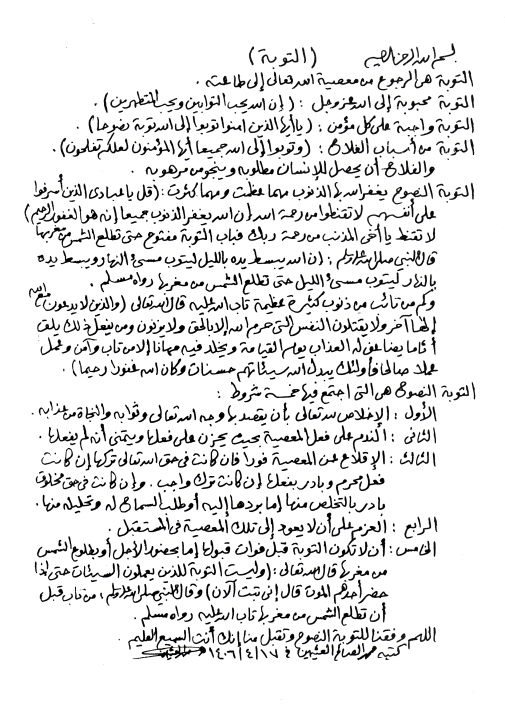 بسم الله الرحمن الرحيم (التوبة)
التوبة هي الرجوع من معصية الله تعالى إلى طاعته .
التوبة محبوبة إلى الله عز وجل : (إن الله يحب التوابين ويحب المتطهرين).
التوبة واجبة على كل مؤمن : (يا أيها الذين آمنوا توبوا إلى الله توبة نصوحا).
التوبة من أسباب الفلاح : (وتوبوا إلى الله جميعا أيها المؤمنون لعلكم تفلحون).
والفلاح أن يحصل للإنسان مطلوبه وينجو من مرهوبه .
التوبة النصوح يغفر الله بها الذنوب مهما عظمت ومهما كثرت : (قل يا عبادي الذين أسرفوا
على أنفسهم لا تقنطوا من رحمة الله إن الله يغفر الذنوب جميعا إنه هو الغفور الرحيم)
لا تقنط يا أخي المذنب من رحمة ربك فباب التوبة مفتوح حتى تطلع الشمس من مغربها
قال النبي صلى الله عليه وسلم : (إن الله يبسط يده بالليل ليتوب مسيء النهار ويبسط يده
بالنهار ليتوب مسيء الليل حتى تطلع الشمس من مغربها رواه مسلم .
وكم من تائب من ذنوب كثيرة عظيمة تاب الله عليه قال الله تعالى (والذين لا يدعون مع الله
إلها آخر ولا يقتلون النفس التي حرم الله إلا بالحق ولا يزنون ومن يفعل ذلك يلق
أثاما يضاعف له العذاب يوم القيامة ويخلد فيه مهانا إلا من تاب وآمن وعمل
عملا صالحا فأولئك يبدل الله سيئاتهم حسنات وكان الله غفورا رحيما).
التوبة النصوح هي التي اجتمع فيها خمسة شروط :
الأول : الإخلاص لله تعالى بأن يقصد بها وجه الله تعالى وثوابه والنجاة من عذابه .
الثاني : الندم على فعل المعصية بحيث يحزن على فعلها ويتمنى أنه لم يفعلها .
الثالث : الإقلاع عن المعصية فورا فإن كانت في حق الله تعالى تركها إن كانت
فعل محرم وبادر بفعلها إن كانت ترك واجب . وإن كانت في حق مخلوق
بادر بالتخلص منها إما بردها إليه أو طلب السماح له وتحليله منها .
الرابع : العزم على أن لا يعود إلى تلك المعصية في المستقبل .
الخامس : أن لا تكون التوبة قبل فوات قبولها إما بحضور الأجل أو بطلوع الشمس
من مغربها قال الله تعالى : (وليست التوبة للذين يعملون السيئات حتى إذا
حضر أحدهم الموت قال إني تبت الآن) وقال النبي صلى الله عليه وسلم : من تاب قبل
أن تطلع الشمس من مغربها تاب الله عليه رواه مسلم .
اللهم وفقنا للتوبة النصوح وتقبل منا إنك أنت السميع العليم .
كتبه محمد الصالح العثيمين في ١٤٠٦/٤/١٧